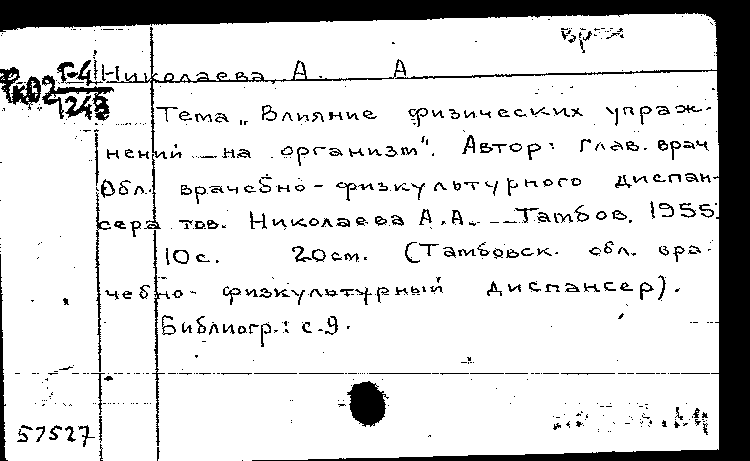 Г-4
1248
Николаева, А. А
Тема „Влияние физических упраж-
нений на организм". Автор: Глав. врач
Обл. врачебно-физкультурного диспан-
сера тов. Николаева А.А. Тамбов, 1955.
10с. 20см. (Тамбовск. обл. вра-
чебно-физкультурный диспансер).
Библиогр.: с.9.
57527